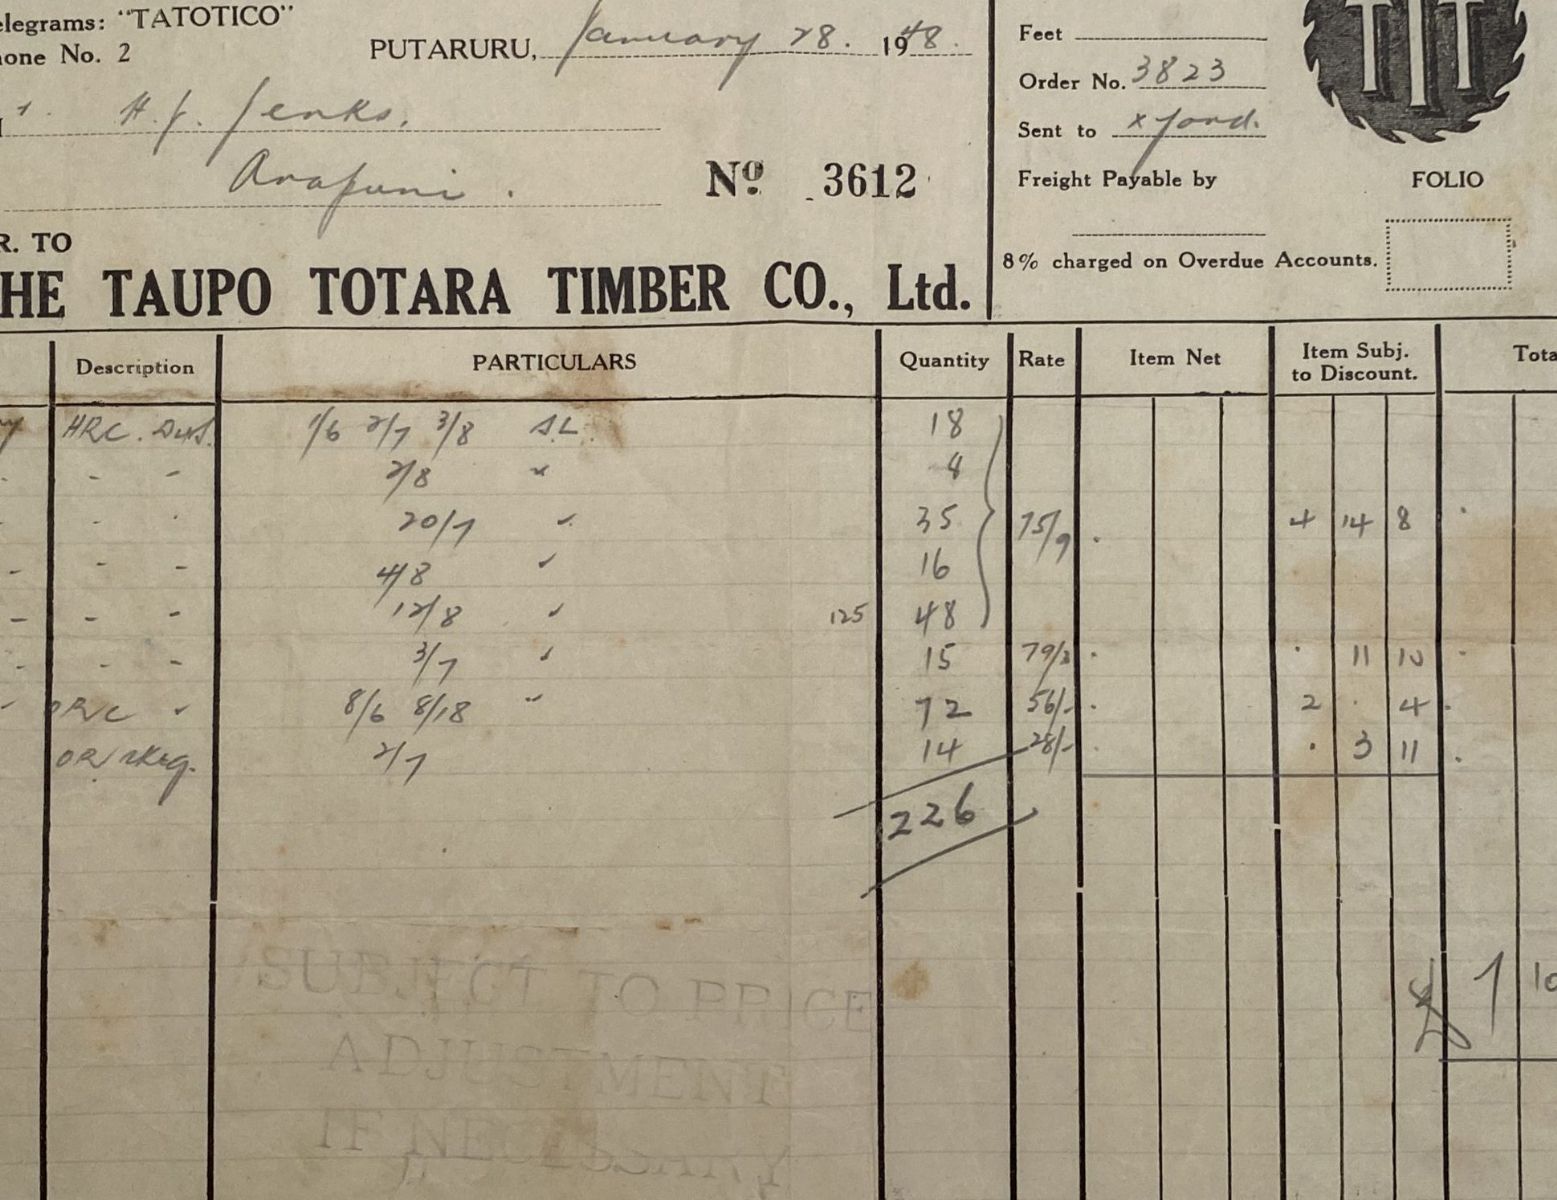 elegrams: "TATOTICO"
one No. 2
PUTARURU, January 28. 1948.
H. J. Jenks.
Arapuni.
No. 3612
R. TO
HE TAUPO TOTARA TIMBER CO., Ltd.
Feet
Order No. 3823
Sent to x yard.
Freight Payable by
8% charged on Overdue Accounts.
TTT
FOLIO
Description PARTICULARS Quantity Rate Item Net Item Subj. to Discount. Tota
HRC. 1/6 2/7 3/8 SL. 18
- - 2/8 " 4
- - 20/7 " 35 75/9 4 14 8
- - - 4/8 " 16
- - - 12/8 " 125 48
- - - 3/7 " 15 79/3 11 10
ORC " 8/6 8/18 " 72 56/- 2 . 4
OR 2/7 14 28/- . 3 11
226
£ 7 10
SUBJECT TO PRICE
ADJUSTMENT
IF NECESSARY